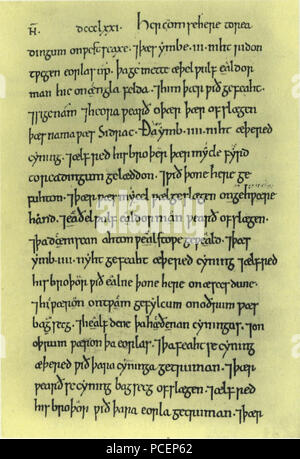 AN̄. DCCCLXXI. Her com se here to rea
dingum on westseaxe. ⁊þæs ymb .iii. niht ridon
twegen eorlas up. þa gemette æþelwulf ealdor
man hie on engla felda. ⁊him þær wiþ gefeaht.
⁊sige nam. ⁊heora wearð oþer þær ofslægen
þæs nama wæs Sidrac. Ða ymb .iiii. niht æþered
cyning. ⁊ælfred his broþer þær mycle fyrd
to readingum gelæddon. ⁊wið þone here ge
fuhton. ⁊þær wæs mycel wæl geslægen on gehwæþre
hand. ⁊eaðelwulf ealdorman wearð ofslægen.
⁊þa deniscan ahton wealstowe geweald. ⁊þæs
ymb .iiii. nyht gefeaht æþered cyning ⁊ælfred
his broþor wið ealne þone here on æsces dune.
⁊hi wæron on twam gefylcum on oðrum wæs
bagsecg. ⁊healfdene þa hæðenan cyningas. ⁊on
oþrum wæron þa eorlas. ⁊þa feaht se cyning
æþered wið þara cyninga getruman. ⁊þær
wearð se cyning bagsecg ofslægen. ⁊ælfred
his broþor wið þara eorla getruman. ⁊þær
alamy
www.alamy.com
PCEP62